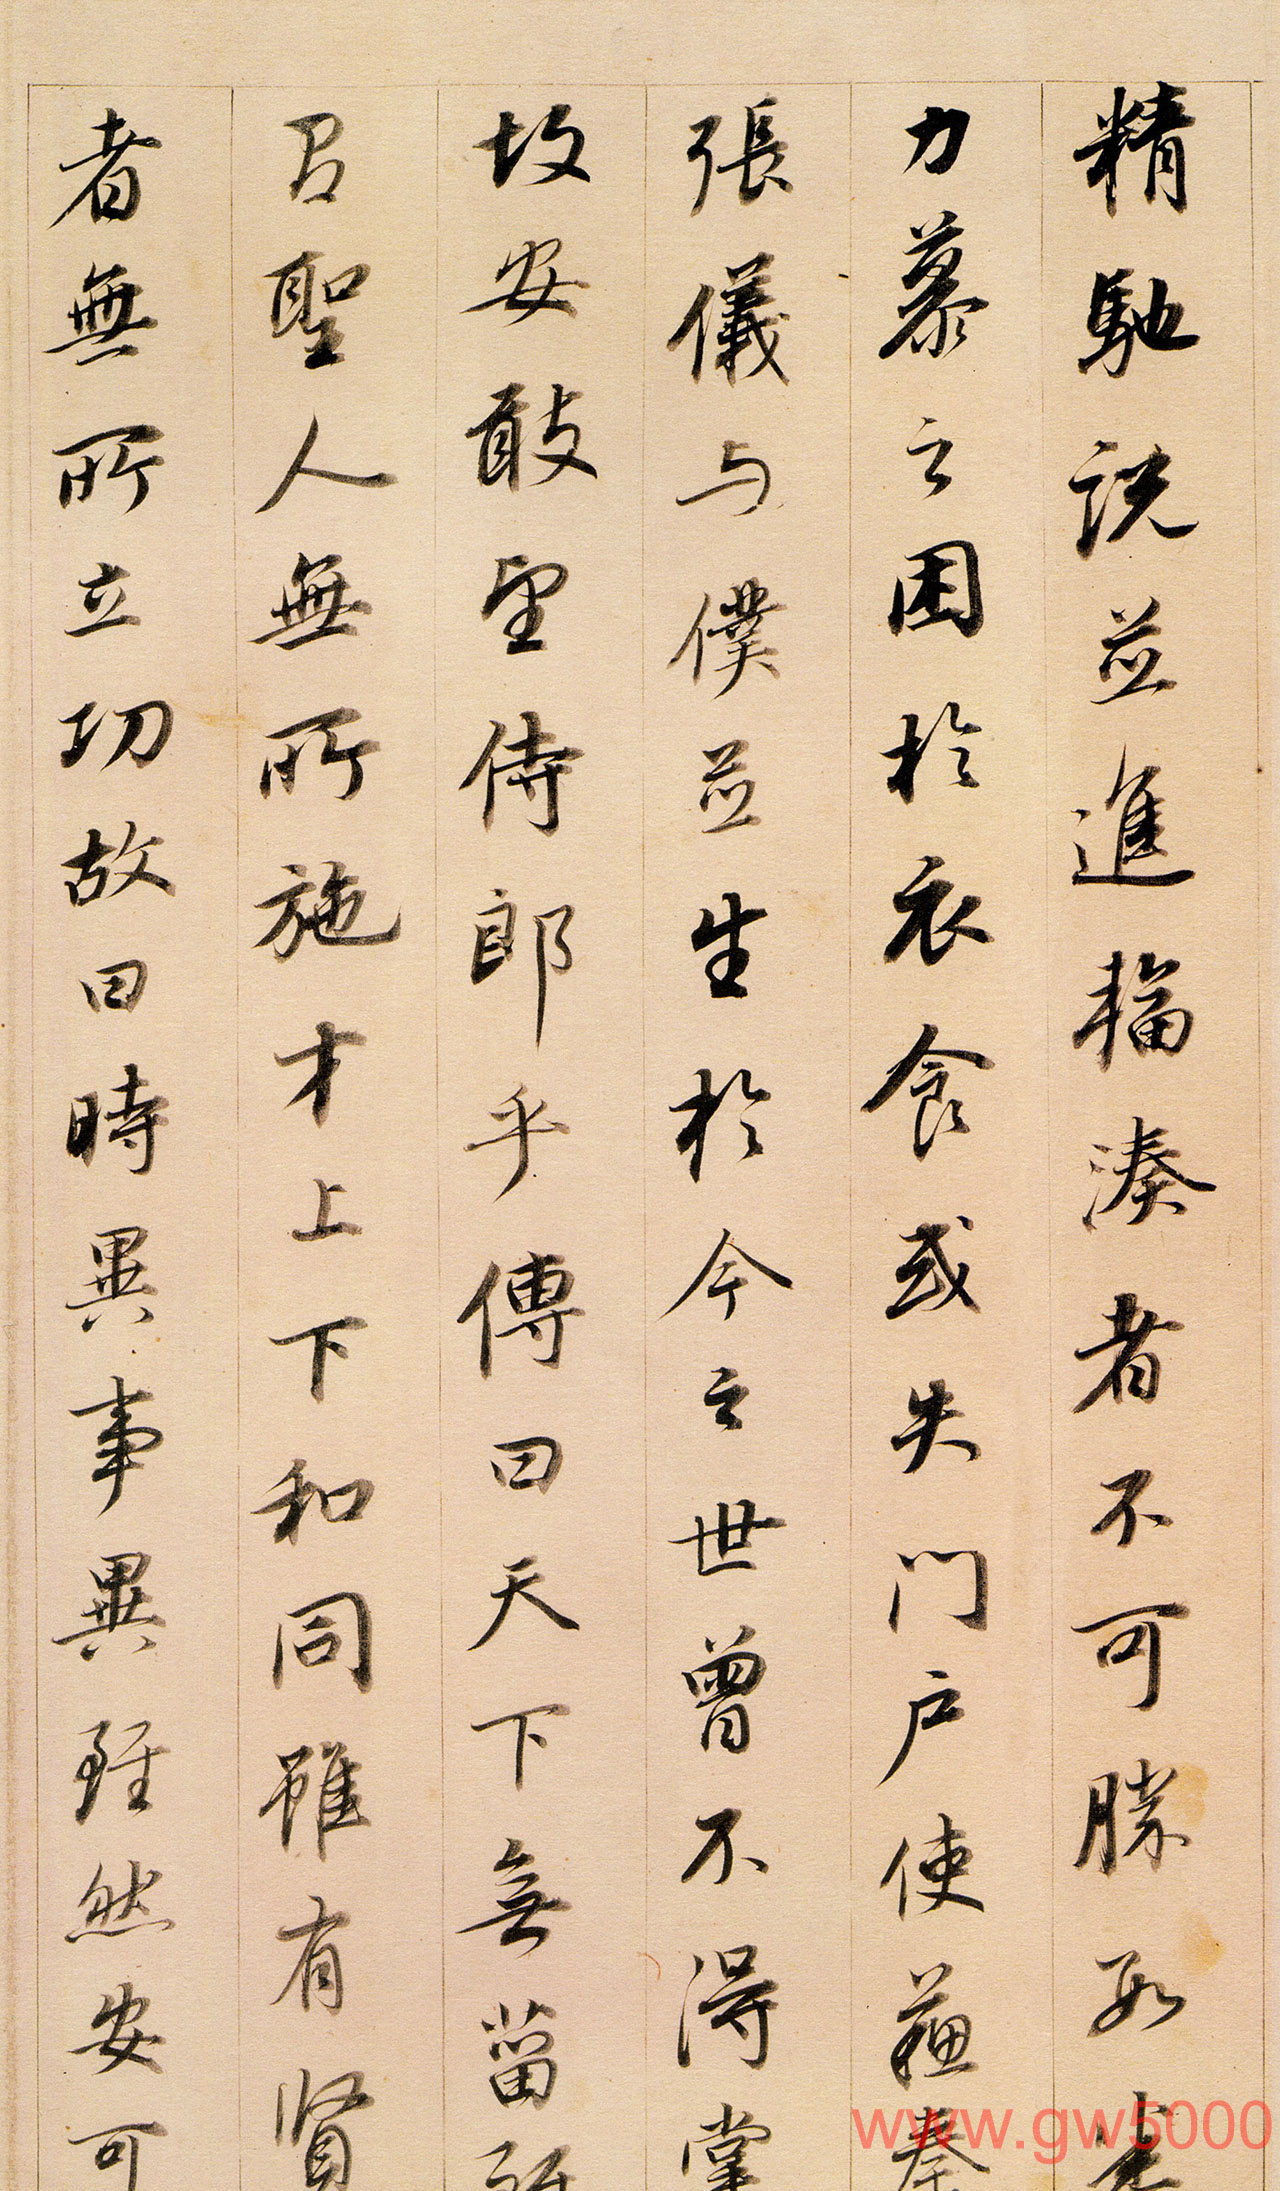 精馳説並進輻湊者不可勝數悉
力慕之困於衣食或失門戶使蘇秦
張儀与僕並生於今之世曾不得掌
故安敢望侍郎乎傳曰天下無菑
以聖人無所施才上下和同雖有賢
者無所立功故曰時異事異雖然安可
www.gw5000